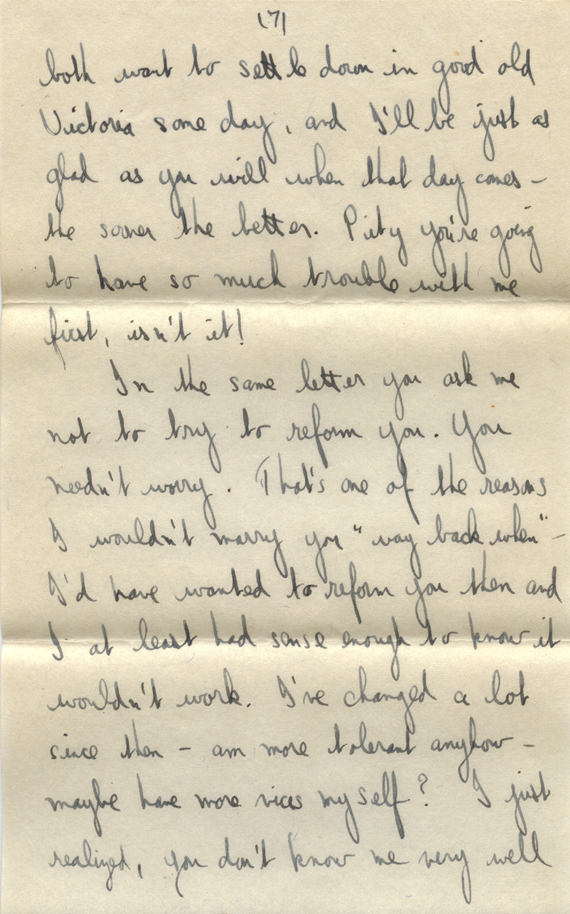 (7)
both want to settle down in good old
Victoria some day, and I'll be just as
glad as you will when that day comes -
the sooner the better. Pity you're going
to have so much trouble with me
first, isn't it!
In the same letter you ask me
not to try to reform you. You
needn't worry. That's one of the reasons
I wouldn't marry you "way back when" -
I'd have wanted to reform you then and
I at least had sense enough to know it
wouldn't work. I've changed a lot
since then - am more tolerant anyhow -
maybe have more vices myself? I just
realized, you don't know me very well